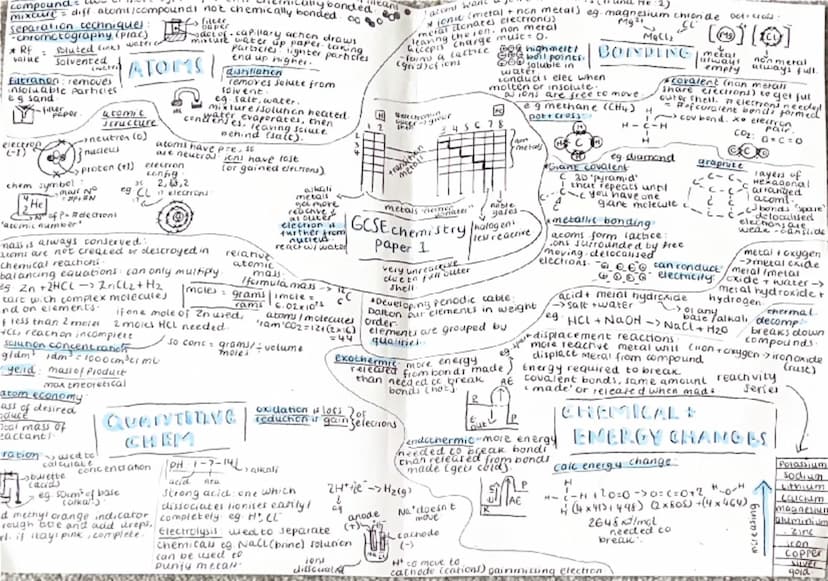 mixture = diff atoms/compounds not chemically bonded.
separation techniques:
- chromatography (plac)
filter
paper
dot of
mixture
capillary action draws
water up paper, taking
particles lighter particles
end up higher.
* Rf
value =
solvent
filtration: removes
insoluble particles
eg sand
filter
paper
ATOMS
distillation
removes solute from
solvent.
eg salt, water.
mixture/solution heated
water evaporates, then
condenses, leaving solute
behind (salt).
atomic
structure
electron
(-1)
neutron (0)
nucleus
proton (+1)
atoms have
are neutral
ions have lost
(or gained electrons)
electron
config:
2, 8, 2
chem symbol:
4
2 He
eg Cl
electrons
"atomic number"
1 2
3 4 5 6 7 8
alkali
metals
get more
reactive
as outer
electron is
further from
nucleus
react w/ water
metals
noble
gases
halogens
less reactive
GCSE chemistry
paper 1
very unreactive
due to full outer
shell
BONDING
* ionic (metal + non metal)
eg. magnesium chloride
metal donates electrons
charge
must = 0.
forms a lattice
(grid) of ions
high melt/
boil points
soluble in
water
conducts elec when
molten or
ions are free to move
Mg²⁺
Cl⁻
MgCl₂
[Mg]
[Cl]
metal
always
empty
non metal
always full.
* covalent (non metals
share electrons) to get full
outer shell.
electrons needed
= no of covalent bonds formed
eg methane (CH₄)
dot + cross:
cov bond.
electron
pair.
CO₂:
O=C=O
* Giant covalent
eg diamond
3D 'pyramid'
that repeats until
you have one
giant molecule
graphite
layers of
hexagonal
arranged
atoms.
bonds 'spare'
delocalised
electrons are
weak - can slide
* metallic bonding
atoms form lattice:
ions surrounded by free
moving delocalised
electrons.
can conduct
electricity
metal + oxygen
→ metal oxide
metal (metal
oxide) + water →
metal hydroxide +
hydrogen
acid + metal hydroxide
→ salt + water
or any
base/alkali
eg HCl + NaOH → NaCl + H₂O
thermal
decomp:
breaks down
compounds.
mass is always conserved:
atoms are not created or destroyed in
chemical reactions.
balancing equations: can only multiply
eg Zn + 2HCl → ZnCl₂ + H₂
start with complex molecules
end on elements.
relative
atomic
mass:
/formula mass
moles = grams
rams
6.02 x 10²³
atoms/molecules
ram CO2 = 12 + (2x16)
= 44
if one mole of Zn used,
2 moles HCl needed.
if less than 2 moles
HCl, reaction incomplete
solution concentration
g/dm³ 1dm³ = 1000cm³/ml
so conc = grams/moles ÷ volume
% yield: mass of product
max theoretical
atom economy
mass of desired
product
total mass of
reactants
QUANTITIVE
CHEM
oxidation is loss
reduction is gain
of
electrons
used to
calculate
concentration
burette
(acid)
eg 50cm³ of base
(alkali)
add methyl orange indicator
through base and add drops,
until it stays pink, complete.
PH 1 → 7 → 14
acid
alkali
strong acid: one which
dissociates ionises easily/
completely eg H⁺Cl⁻
Electrolysis used to separate
chemicals eg NaCl (brine) solution
can be used to
purify metals
ions
dissociated
2H⁺ + e⁻ → H₂(g)
eg
Na⁺ doesn't
move
anode
(+)
cathode
(-)
H⁺ to move to
cathode (cations) gaining missing electron
* Developing periodic table:
Dalton put elements in weight
order.
elements are grouped by
qualities.
exothermic
- more energy
released from bonds made
than needed to break
bonds (hot)
AE
R
P
out
endothermic - more energy
needed to break bonds
than released from bonds
made (gets cold)
AE
R
P
displacement reactions
more reactive metal will
displace metal from compound
(iron + oxygen → iron oxide
(rust)
Energy required to break
covalent bonds, same amount
'made' or released when made
CHEMICAL +
ENERGY CHANGES
calc energy change:
O=O → O=C=O + 2 H-O-H
2648 kJ/mol
needed to
break.
reactivity
series
increasing
potassium
sodium
lithium
calcium
magnesium
aluminium
zinc
iron
copper
silver
gold